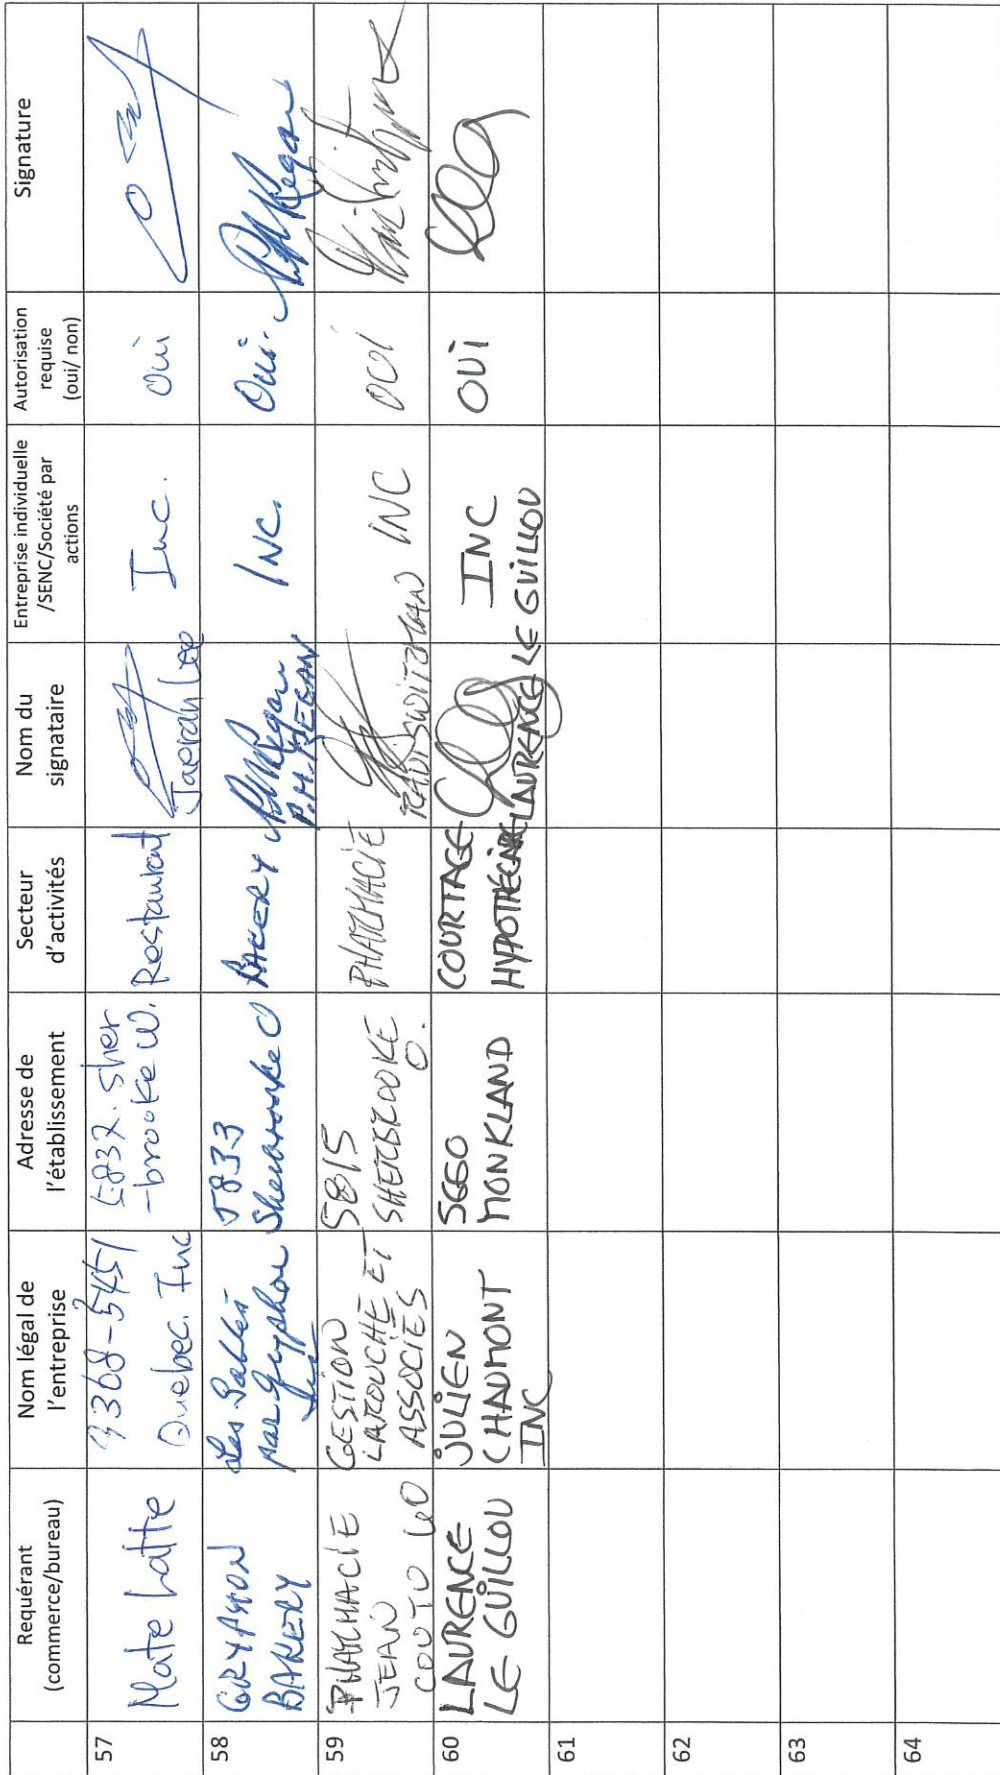 Requérant
(commerce/bureau)
Nom légal de
l'entreprise
Adresse de
l'établissement
Secteur
d'activités
Nom du
signataire
Entreprise individuelle
/SENC/Société par
actions
Autorisation
requise
(oui/ non)
Signature
57
Mate Latte
9368-5451
Quebec. Inc
5837. Sher
-brooke W.
Restaurant
Jaeran Lee
Inc.
Oui
58
GRYPHON
BAKERY
Les Sablés
par Gryphon
Inc
5833
Sherbrooke O
BAKERY
P.M. REGAN
INC.
Oui.
59
PHARMACIE
JEAN
COUTU
GESTION
LAROUCHE ET
ASSOCIÉS
5815
SHERBROOKE
O.
PHARMACIE
SWITZMAN
INC
OUI
60
LAURENCE
LE GUILLOU
JULIEN
CHAUMONT
INC
5660
MONKLAND
COURTAGE
HYPOTHÉCAIRE
LAURENCE LE GUILLOU
INC
OUI
61
62
63
64